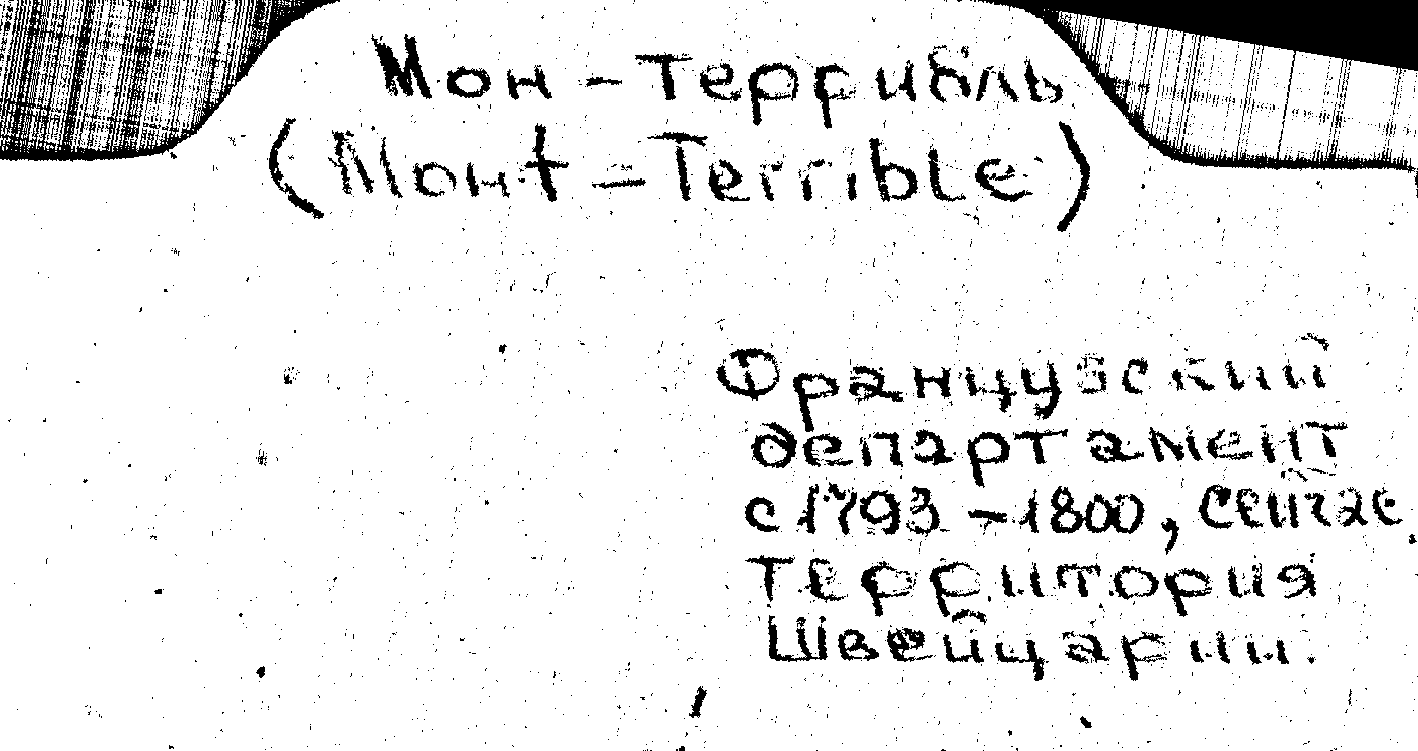 Мон-Террибль
(Mont-Terrible)
Французский
департамент
с 1793-1800, сейчас
территория
Швейцарии.